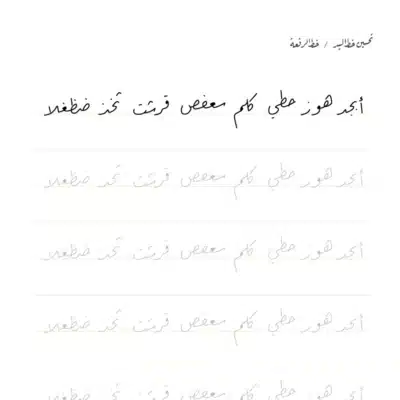 تحسين خط اليد / خط الرقعة
أبجد هوز حطي كلمن سعفص قرشت ثخذ ضظغلا
أبجد هوز حطي كلمن سعفص قرشت ثخذ ضظغلا
أبجد هوز حطي كلمن سعفص قرشت ثخذ ضظغلا
أبجد هوز حطي كلمن سعفص قرشت ثخذ ضظغلا
أبجد هوز حطي كلمن سعفص قرشت ثخذ ضظغلا